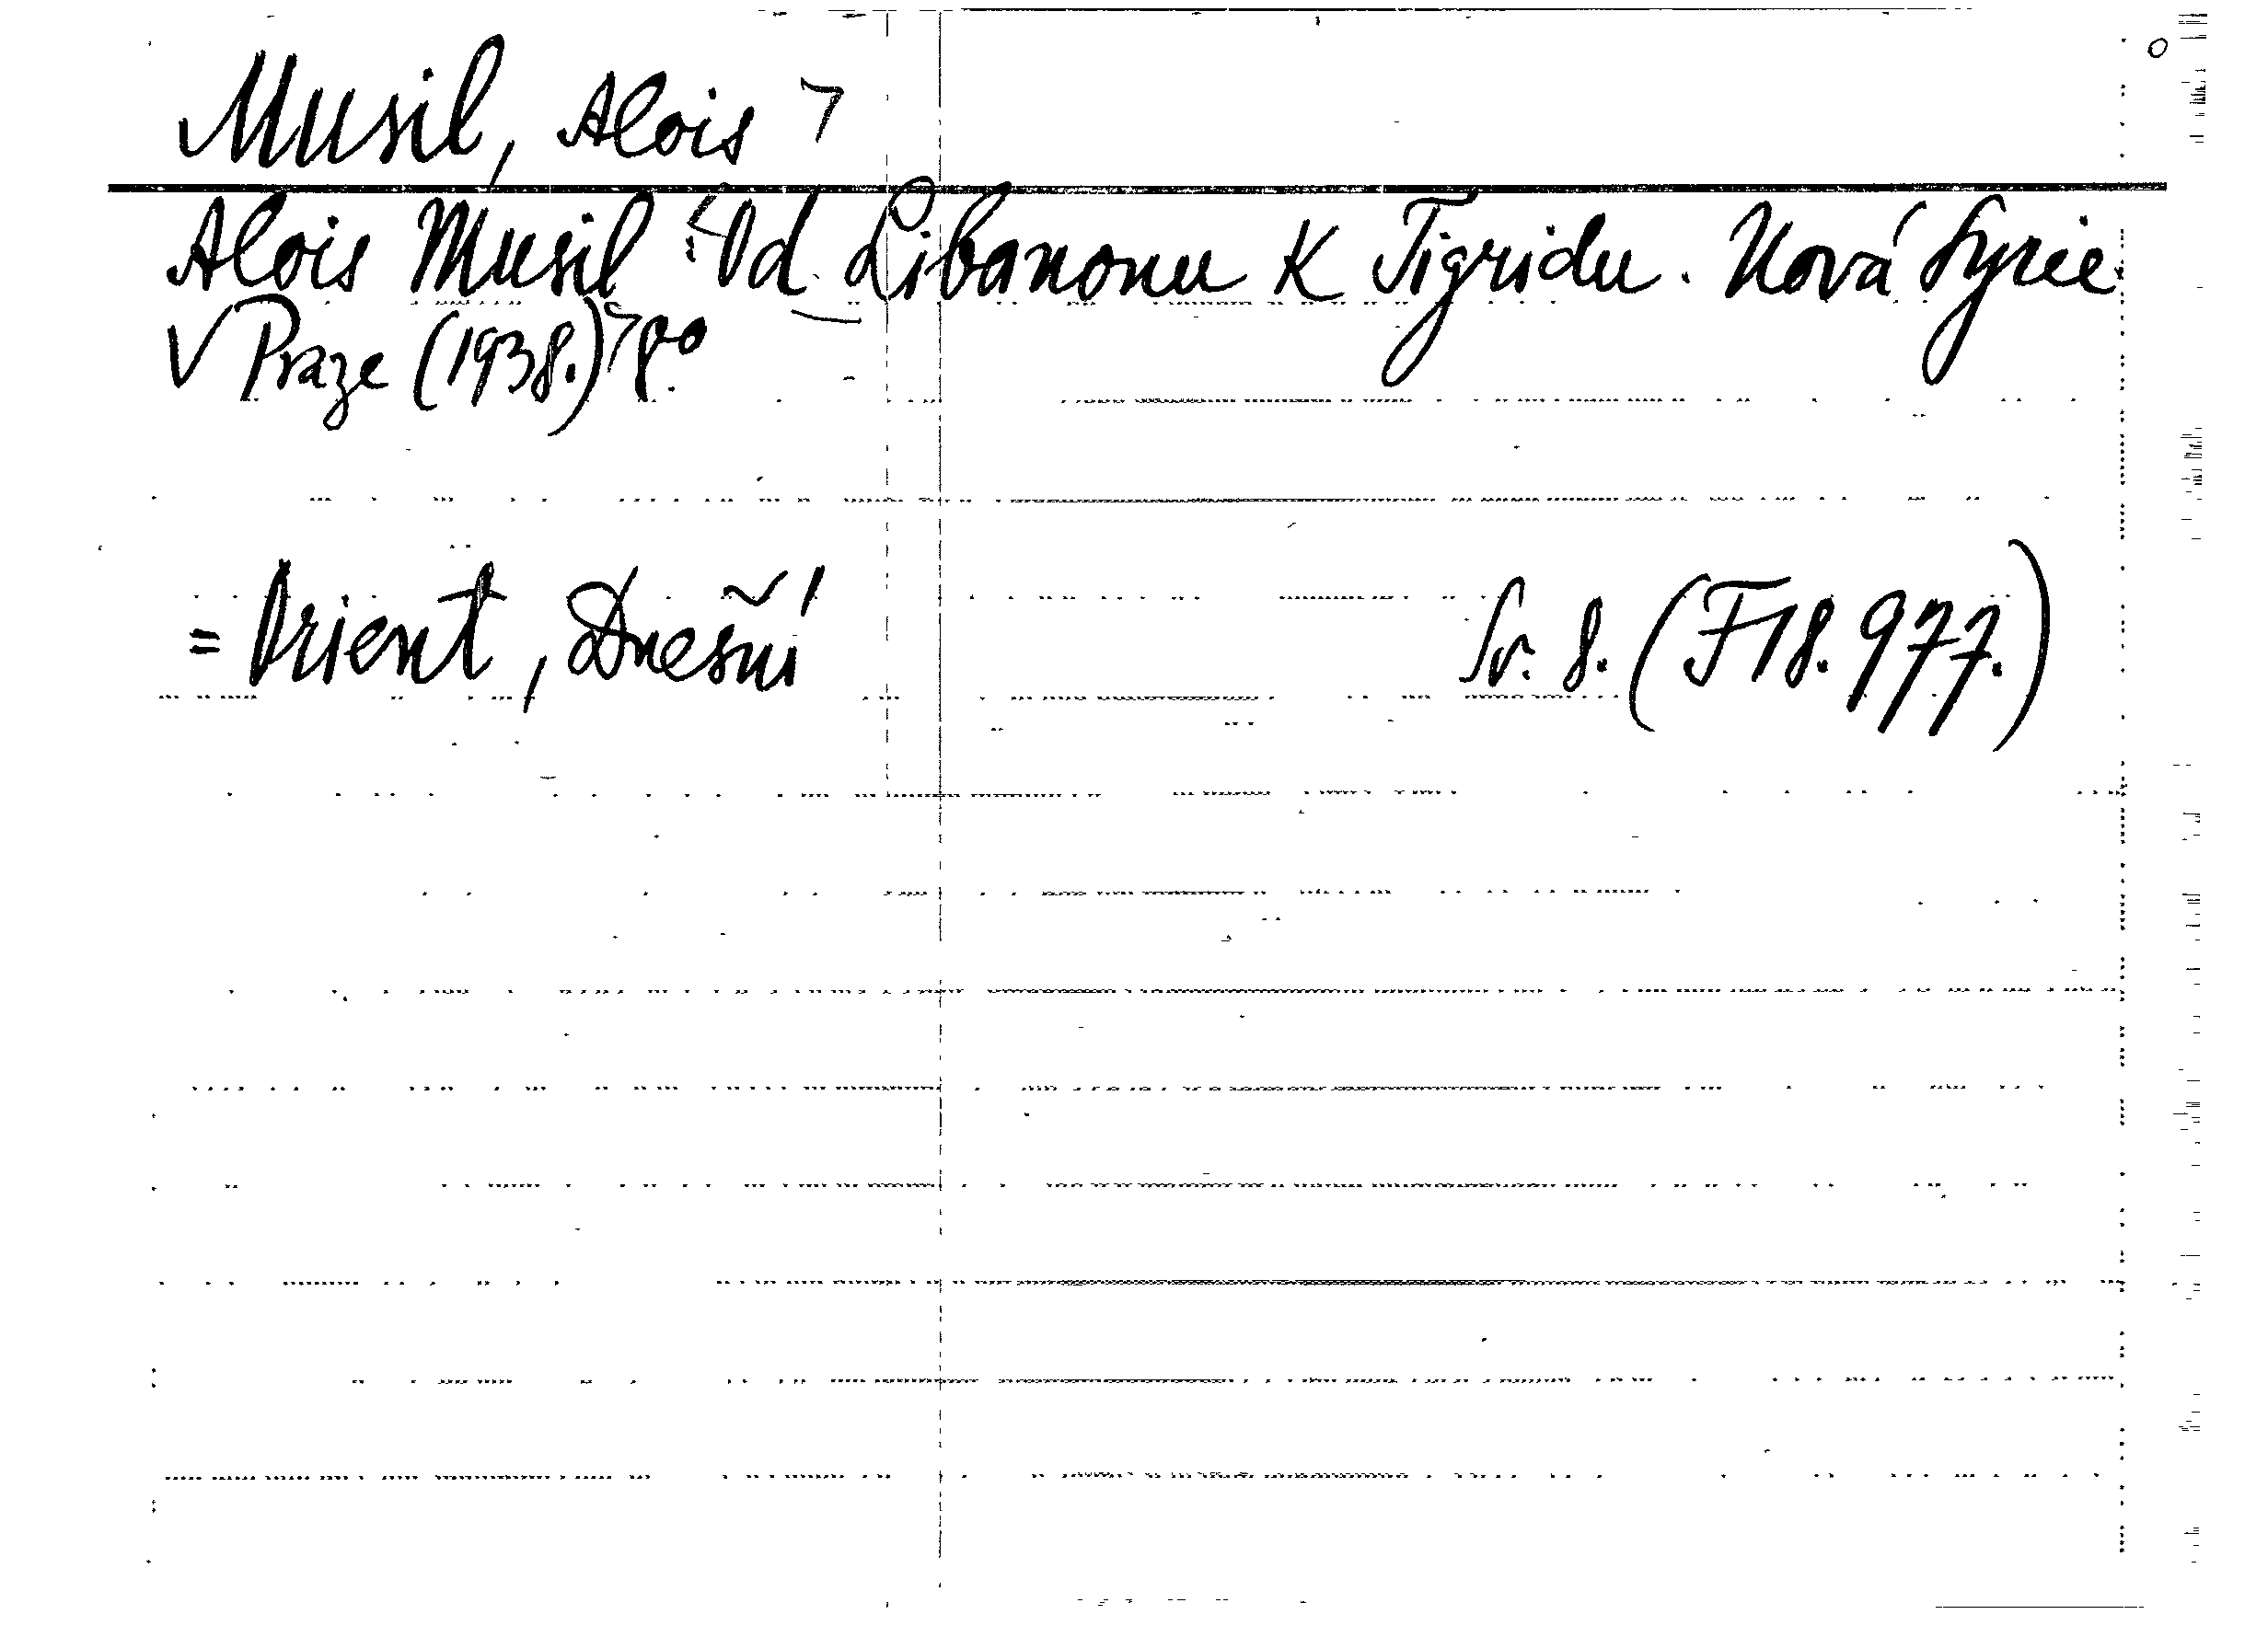 Musil, Alois
Alois Musil: Od Libanonu k Tigridu. Nová Syrie.
V Praze (1938.) 8º.
= Orient, Dnešní Sv. 8. (F 18.977.)